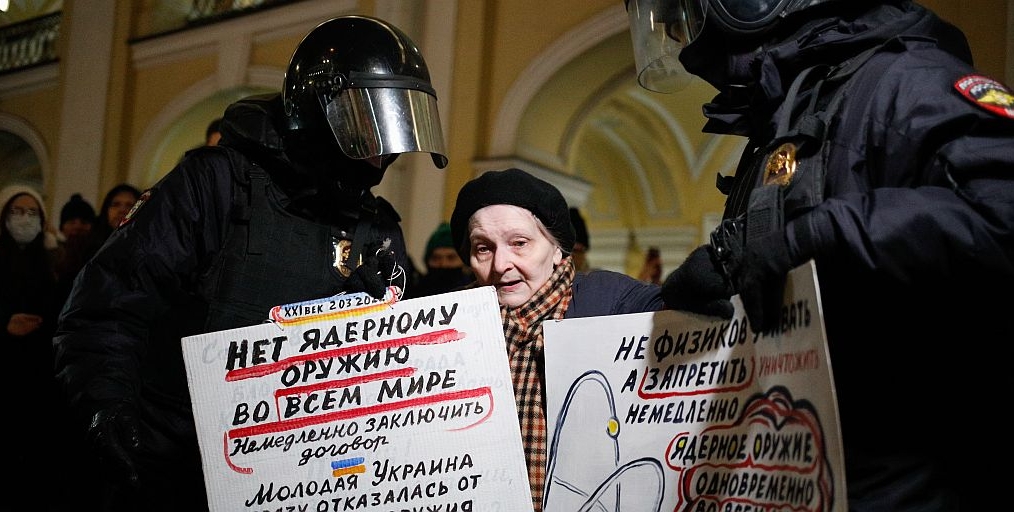 XXI ВЕК 2.03.202
НЕТ ЯДЕРНОМУ
ОРУЖИЮ
ВО ВСЕМ МИРЕ
НЕМЕДЛЕННО ЗАКЛЮЧИТЬ
ДОГОВОР
МОЛОДАЯ УКРАИНА
ОТКАЗАЛАСЬ ОТ
НЕ ФИЗИКОВ
А ЗАПРЕТИТЬ УНИЧТОЖИТЬ
НЕМЕДЛЕННО
ЯДЕРНОЕ ОРУЖИЕ
ОДНОВРЕМЕННО